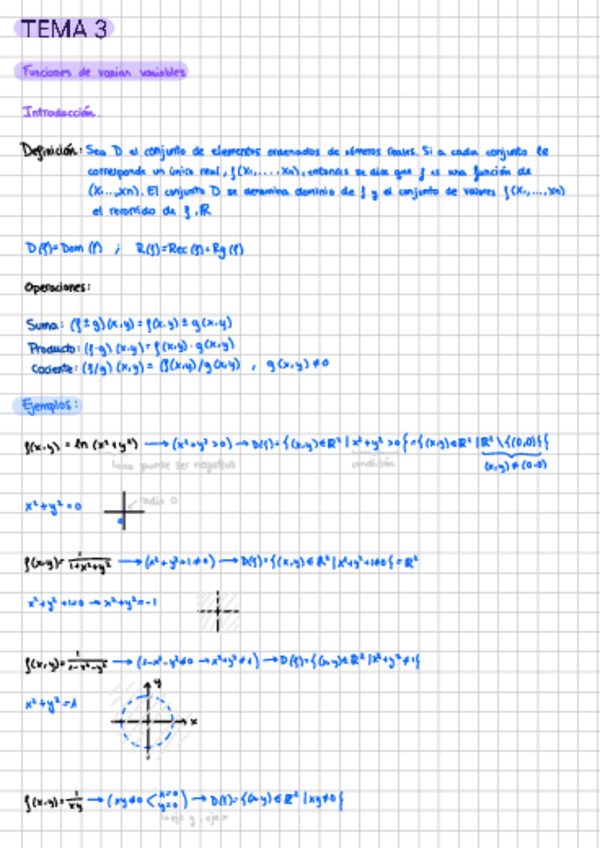 TEMA 3
Funciones de varias variables
Introducción.
Definición: Sea D el conjunto de elementos ordenados de números reales. Si a cada conjunto le
corresponde un único real, f(x₁,...,xn), entonces se dice que f es una función de
(x₁...,xn). El conjunto D se denomina dominio de f y el conjunto de valores f(x₁,...,xn)
el recorrido de f, R
D(f)=Dom(f) ; R(f)=Rec(f)=Rg(f)
Operaciones:
Suma: (f±g)(x,y)=f(x,y)±g(x,y)
Producto: (f·g)(x,y)=f(x,y)·g(x,y)
Cociente: (f/g)(x,y)=(f(x,y)/g(x,y) , g(x,y)≠0
Ejemplos:
f(x,y) = ln(x²+y²) → (x²+y²>0) → D(f)={(x,y)∈R² | x²+y²>0}={(x,y)∈R² | R²\{(0,0)}}
no puede ser negativo condición (x,y)≠(0,0)
x²+y²=0 radio 0
0
f(x,y)=1/(1+x²+y²) → (x²+y²+1≠0) → D(f)={(x,y)∈R² | x²+y²+1≠0}=R²
x²+y²+1=0 → x²+y²=-1
f(x,y)=1/(1-x²-y²) → (1-x²-y²≠0 → x²+y²≠1) → D(f)={(x,y)∈R² | x²+y²≠1}
y
x²+y²=1
x
f(x,y)=1/xy → (xy≠0 < x=0 y=0) → D(f)={(x,y)∈R² | xy≠0}
eje y, eje x